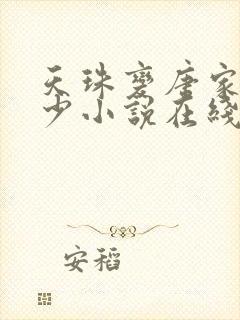 天珠变唐家
少小說在綫
安稻